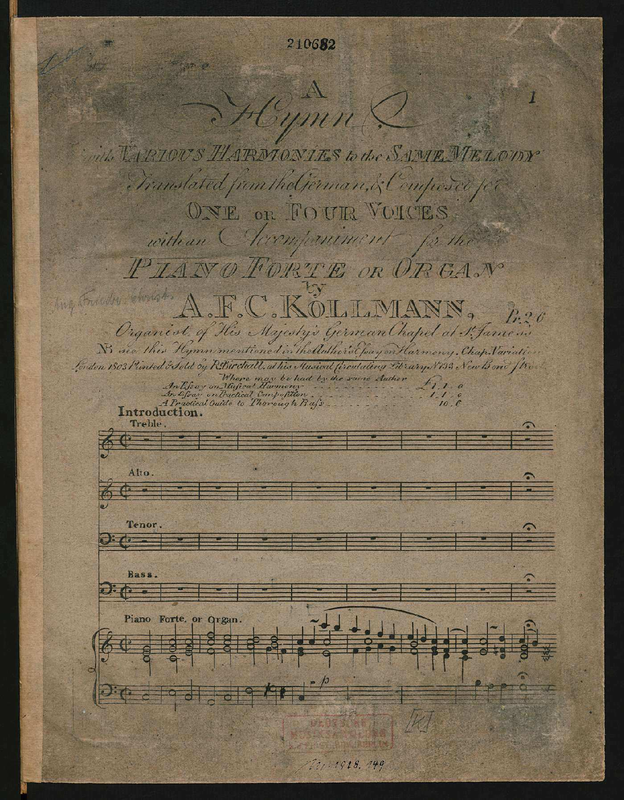 210682
A
1
Hymn
with VARIOUS HARMONIES to the SAME MELODY
Translated from the German, & Composed for
ONE OR FOUR VOICES
with an Accompaniment for the
PIANO FORTE OR ORGAN
by
A.F.C. KOLLMANN,
Pr. 2/6
Organist of His Majesty's German Chapel at St. James's
is this Hymn mentioned in the Author's Essay on Harmony, Chap. Variation
London 1803 Printed & Sold by R. Birchall, at his Musical Circulating Library, No. 133 New Bond Street
Where may be had by the same Author
An Essay on Musical Harmony £1.1.0
An Essay on Practical Composition 1.1.0
A Practical Guide to Thorough Bass 10.6
Introduction.
Treble.
Alto.
Tenor.
Bass.
Piano Forte, or Organ.
p
[K]